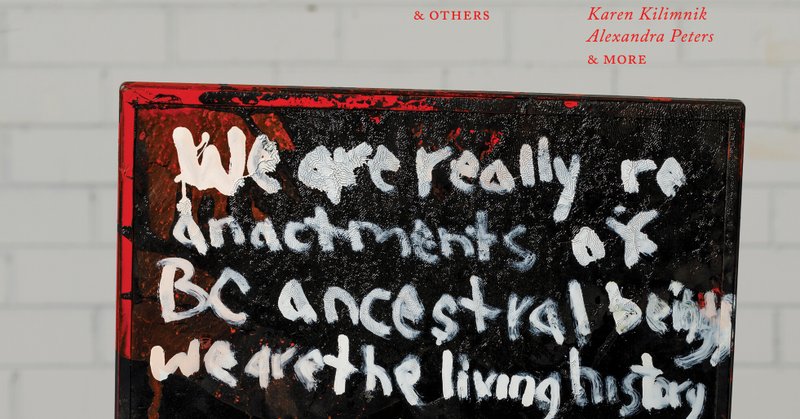 & OTHERS
Karen Kilimnik
Alexandra Peters
& MORE
We are really re
anactments of
BC ancestral beings
we are the living history